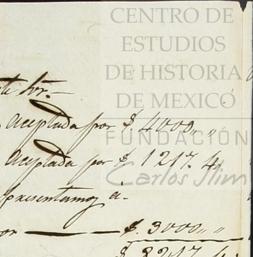 CENTRO DE
ESTUDIOS
DE HISTORIA
DE MEXICO
FUNDACIÓN
Carlos Slim
te Sor.
aceptada por $ 4000,,
aceptada por $ 1217. 4
presentamos á
$. 3000,,